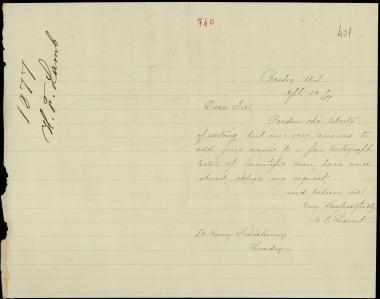 740
401
1877
H. P. Lamb
Sept 20/77
Dear Sir,
Pardon the liberty
of writing, but am very anxious to
add your name to a few Autograph
letters of Scientific men, hope and
trust oblige my request,
and believe me
Very Respectfully
H. P. Lamb
Dr Henry Schliemann
London